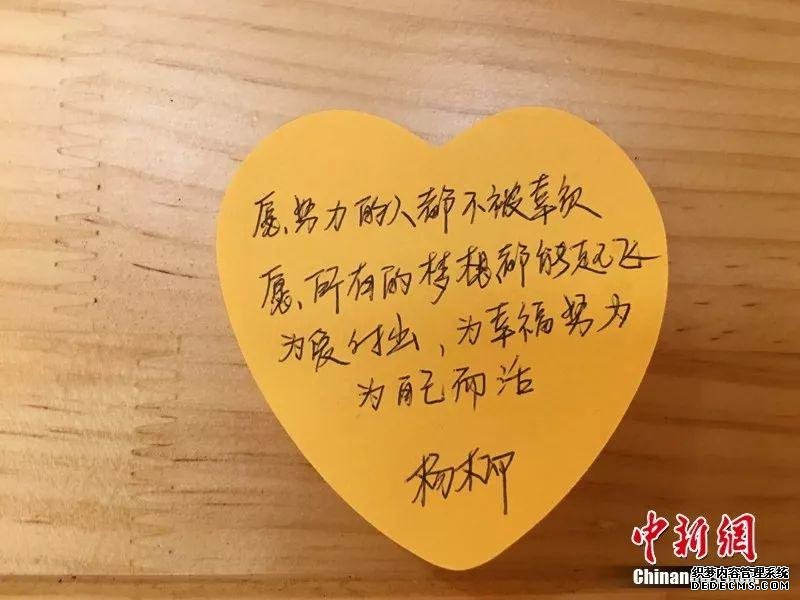 愿努力的人都不被辜负
愿所有的梦想都能起飞
为爱付出，为幸福努力
为自己而活
杨柳
中新網
Chinan
织梦内容管理系统
DEDECMS.COM